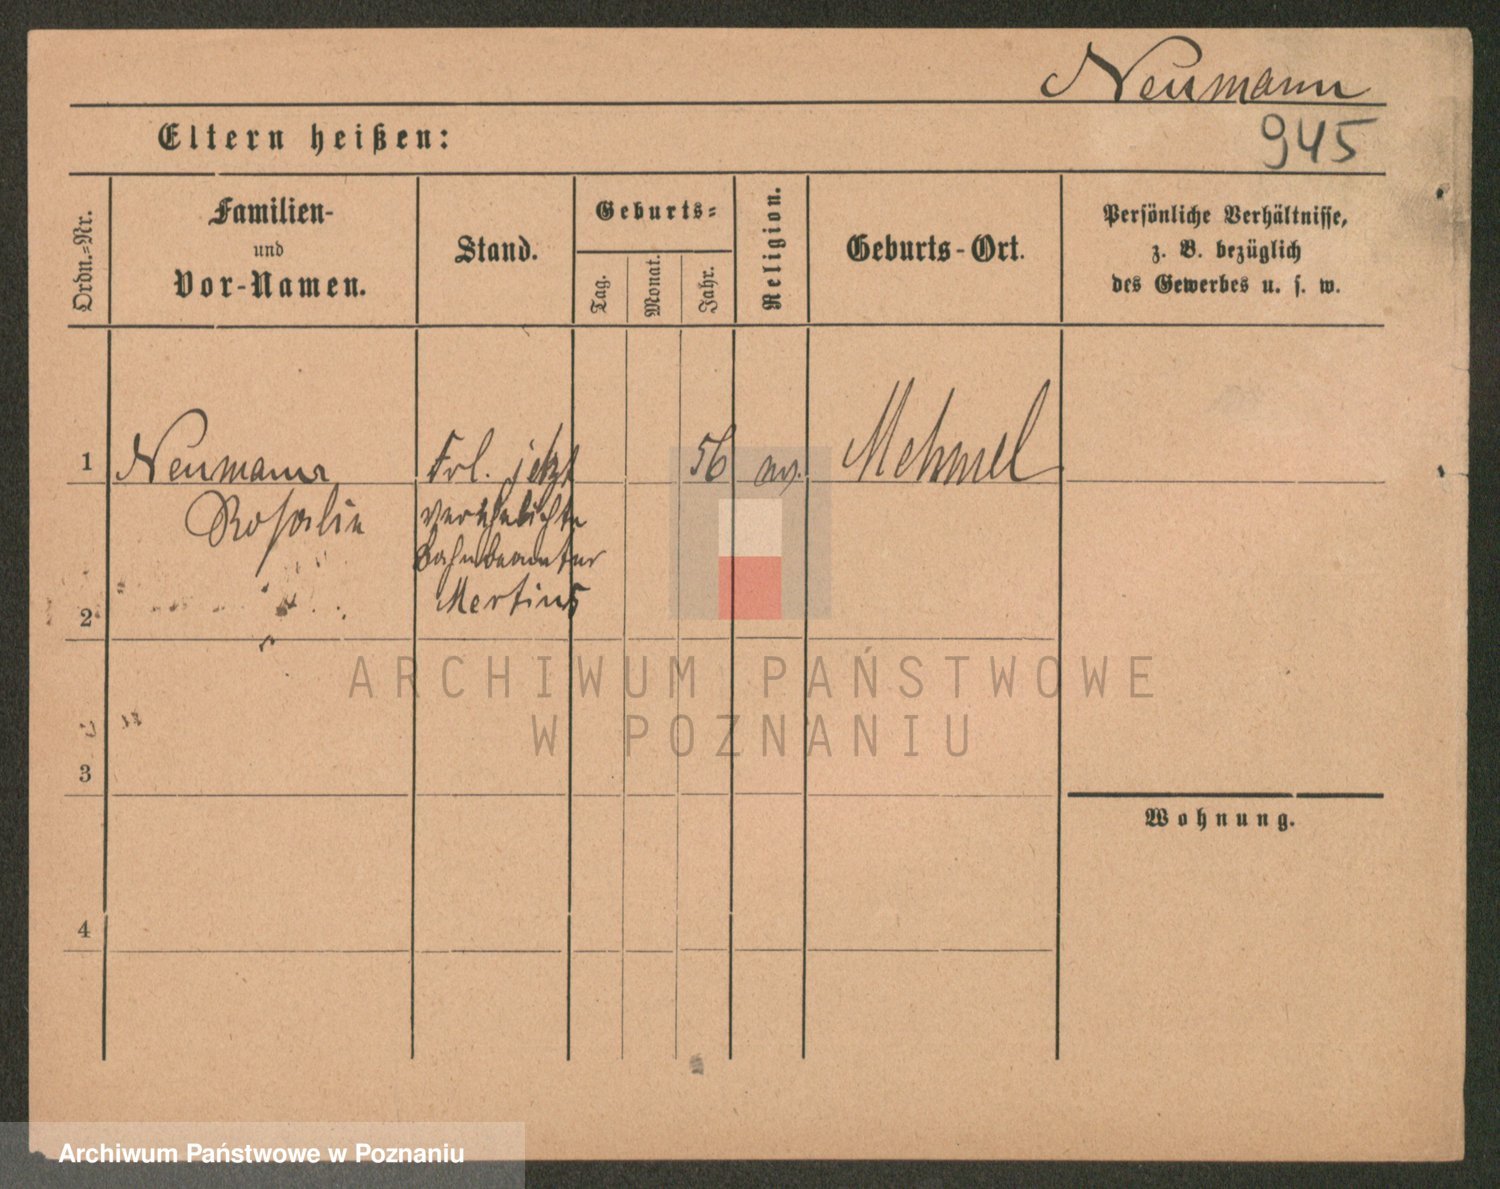 Neumann
945
Eltern heißen:
Ordn.-Nr.
Familien-
und
Vor-Namen.
Stand.
Geburts-
Tag.
Monat.
Jahr.
Religion.
Geburts-Ort.
Persönliche Verhältnisse,
z. B. bezüglich
des Gewerbes u. s. w.
1
Neumann
Rosalie
Frl. jetzt
verehelichte
Bahnbeamter
Mertins
56
Mehmel
2
3
4
Wohnung.
ARCHIWUM PAŃSTWOWE
W POZNANIU
Archiwum Państwowe w Poznaniu